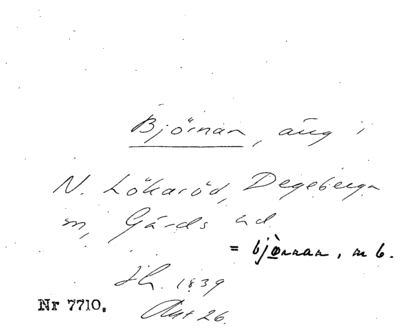 Björnan, äng i
N. Lökaröd, Degeberga
sn, Gärds hd
= bjø̀nnan, m b.
Sk. 1839
Akt 26.
Nr 7710.